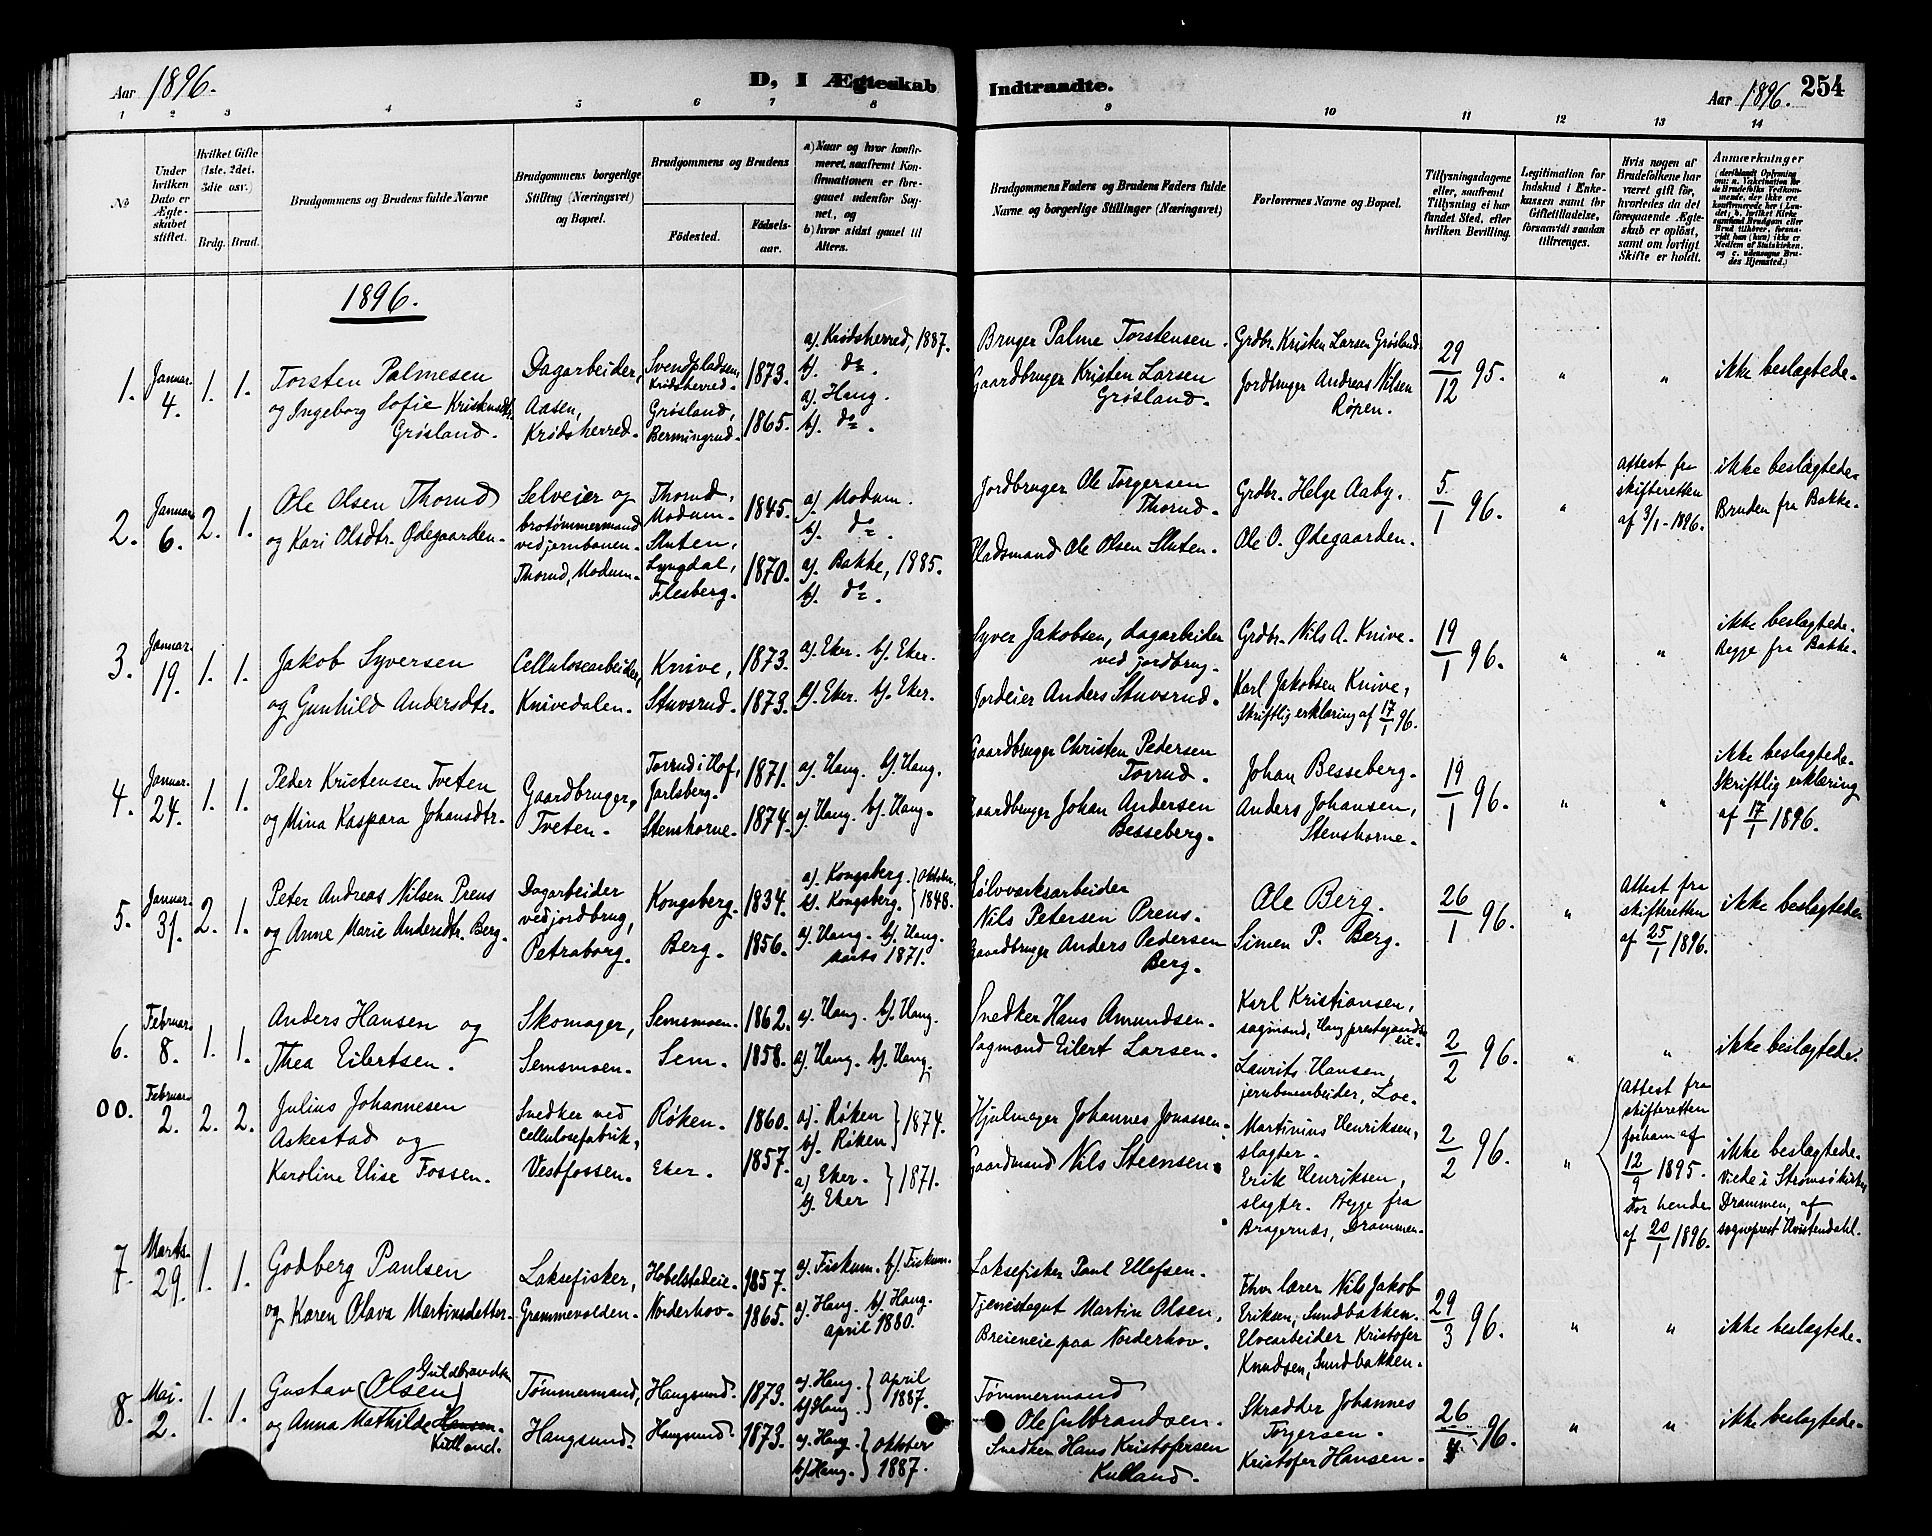 Aar 1896.
D, I Ægteskab
Indtraadte.
Aar 1896.
254
1 2 3 4 5 6 7 8 9 10 11 12 13 14
No
Under hvilken Dato er Ægteskabet stiftet.
Hvilket Gifte (1ste, 2det, 3die osv.)
Brdg. Brud.
Brudgommens og Brudens fulde Navne
Brudgommens borgerlige Stilling (Næringsvei) og Bopæl.
Brudgommens og Brudens
Fødested.
Fødselsaar.
a) Naar og hvor konfirmeret, saafremt Konfirmationen er foregaaet udenfor Sognet, og
b) hvor sidst gaaet til Alters.
Brudgommens Faders og Brudens Faders fulde Navne og borgerlige Stillinger (Næringsvei)
Forlovernes Navne og Bopæl.
Tillysningsdagene eller, saafremt Tillysning ei har fundet Sted, efter hvilken Bevilling.
Legitimation for Indskud i Enkekassen samt for Giftetilladelse, forsaavidt saadan tiltrænges.
Hvis nogen af Brudefolkene har været gift før, hvorledes da det foregaaende Ægteskab er opløst, samt om lovligt Skifte er holdt.
Anmærkninger
1896.
1. Januar 4. 1. 1.
Torsten Palmesen
og Ingeborg Sofie Kristensdtr.
Grøsland.
Dagarbeider,
Aasen,
Krødsherred.
Svendpladsen,
Krødsherred.
Grøsland,
Bermingrud.
1873.
1865.
a). Krødsherred, 1887.
b). do.
a). Haug.
b). do.
Bruger Palme Torstensen.
Gaardbruger Kristen Larsen
Grøsland.
Grdbr. Kristen Larsen Grøsland.
Jordbruger Andreas Nilsen
Røpen.
29/12 95.
"
"
ikke beslægtede.
2. Januar 6. 2. 1.
Ole Olsen Thorud
og Kari Olsdtr. Ødegaarden.
Selveier og
brotømmermand
ved jernbanen.
Thorud, Modum.
Thorud,
Modum.
Sluten,
Lyngdal,
Flesberg.
1845.
1870.
a). Modum.
b). do.
a). Bakke, 1885.
b). do.
Jordbruger Ole Torgersen
Thorud.
Pladsmand Ole Olsen Sluten.
Grdbr. Helge Aaby.
Ole O. Ødegaarden.
5/1 96.
"
Attest fra
skifteretten
af 3/1 - 1896.
ikke beslægtede.
Bruden fra Bakke.
3. Januar 19. 1. 1.
Jakob Syversen
og Gunhild Andersdtr.
Cellulosearbeider,
Knivedalen.
Knive,
Stuvsrud.
1873.
1873.
a). Eker. b). Eker.
a). Eker. b). Eker.
Syver Jakobsen, dagarbeider
ved jordbrug.
Jordeier Anders Stuvsrud.
Grdbr. Nils A. Knive.
Karl Jakobsen Knive,
Skriftlig erklæring af 17/1 96.
19/1 96.
"
"
ikke beslægtede.
Begge fra Bakke.
4. Januar 24. 1. 1.
Peder Kristensen Tveten
og Mina Kaspara Johansdtr.
Gaardbruger,
Tveten.
Torrud i Hof,
Jarlsberg.
Stenshorne.
1871.
1874.
a). Haug. b). Haug.
a). Haug. b). Haug.
Gaardbruger Christen Pedersen
Torrud.
Gaardbruger Johan Andersen
Besseberg.
Johan Besseberg.
Anders Johansen,
Stenshorne.
19/1 96.
"
"
ikke beslægtede.
Skriftlig erklæring
af 17/1 1896.
5. Januar 31. 2. 1.
Peter Andreas Nilsen Prens
og Anne Marie Andersdtr. Berg.
Dagarbeider
ved jordbrug,
Petraborg.
Kongsberg.
Berg.
1834.
1856.
a). Kongsberg.
b). Kongsberg. } Oktober 1848.
a). Haug. b). Haug.
Marts 1871.
Sølvværksarbeider
Nils Petersen Prens.
Gaardbruger Anders Pedersen
Berg.
Ole Berg.
Simen P. Berg.
26/1 96.
"
Attest fra
skifteretten
af 25/1 1896.
ikke beslægtede
6. Februar 8. 1. 1.
Anders Hansen og
Thea Eilertsen.
Skomager,
Semsmoen.
Semsmoen.
Sem.
1862.
1858.
a). Haug. b). Haug.
a). Haug. b). Haug.
Snedker Hans Amundsen.
Sagmand Eilert Larsen.
Karl Kristiansen,
sagmand, Haug prestegaards
eie.
Laurits Hansen,
jernbanearbeider, Loe.
2/2 96.
"
"
ikke beslægtede.
00. Februar 2. 2. 2.
Julius Johannesen
Askestad og
Karoline Elise Fossen.
Snedker ved
cellulosefabrik,
Vestfossen.
Røken.
Eker.
1860.
1857.
a). Røken
b). Røken } 1874.
a) Eker.
b). Eker } 1871.
Hjulmager Johannes Jonassen.
Gaardmand Nils Steensen.
Martinius Henriksen,
slagter.
Erik Henriksen,
slagter. Begge fra
Bragernæs, Drammen.
2/2 96.
"
Attest fra
skifteretten
for ham af
12/9 1895.
For hende
af 20/1 1896.
ikke beslægtede.
Viede i Strømsø kirke,
Drammen, af
sogneprest Hvistendahl.
7. Marts 29. 1. 1.
Godberg Paulsen
og Karen Olava Martinsdatter.
Laksefisker,
Grammevolden.
Hobelstadeie.
Norderhov.
1857.
1865.
a). Fiskum. b). Fiskum.
a). Haug. b). Haug.
april 1880.
Laksefisker Paul Ellefsen.
Tjenestegut Martin Olsen,
Breieneie paa Norderhov.
Fhv. lærer Nils Jakob
Eriksen, Sundbakken.
Elvearbeider Kristofer
Knudsen, Sundbakken.
29/3 96.
"
"
ikke beslægtede.
8. Mai 2. 1. 1.
Guldbrandsen
Gustav (Olsen)
og Anna Mathilde Hansen.
Kulland.
Tømmermand,
Haugsund.
Haugsund.
Haugsund.
1873.
1873.
a). Haug.
b). Haug } april 1887.
a). Haug.
b). Haug. } oktober 1887.
Tømmermand
Ole Gulbrandsen.
Snedker Hans Kristofersen
Kulland.
Skrædder Johannes
Torgersen.
Kristofer Hansen.
26/4 96.
"
"
ikke beslægtede.